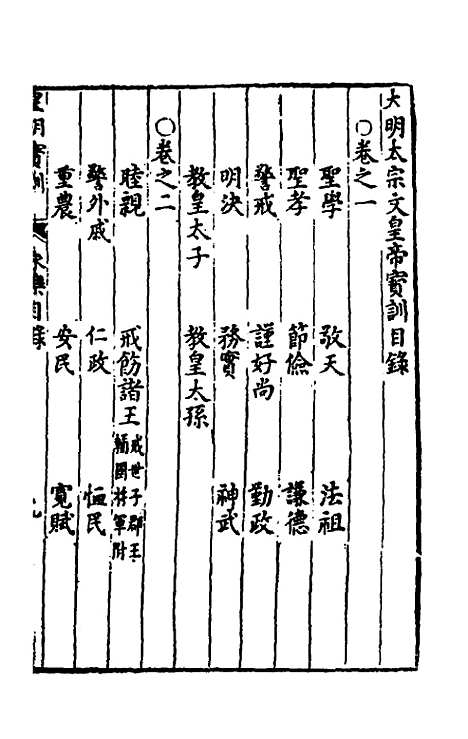 大明太宗文皇帝寶訓目錄
○卷之一
聖學 敬天 法祖
聖孝 節儉 謙德
警戒 謹好尚 勤政
明決 務實 神武
教皇太子 教皇太孫
○卷之二
睦親 戒飭諸王 戒世子郡王輔國將軍附
警外戚 仁政 恤民
重農 安民 寬賦
皇明寶訓 永樂目錄